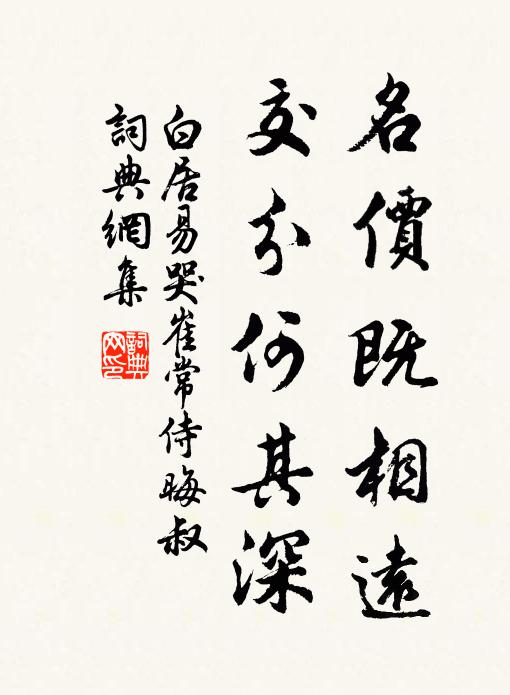 名價既相遠
交分何其深
白居易哭崔常侍晦叔
詞典網集
詞典網印